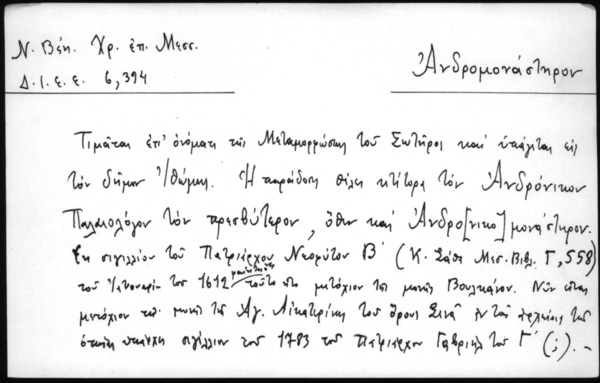 Ν. Βέη. Χρ. ἐπ. Μεσσ.
Δ.Ι.Ε.Ε. 6, 394
Ἀνδρομονάστηρον
Τιμᾶται ἐπ' ὀνόματι τῆς Μεταμορφώσεως τοῦ Σωτῆρος καὶ ὑπάγεται εἰς
τὸν δῆμον Ἰθώμης. Ἡ παράδοση θέλει κτήτορα τὸν Ἀνδρόνικον
Παλαιολόγον τὸν πρεσβύτερον, ὅθεν καὶ Ἀνδρο[νικο]μονάστηρον.
Ἐκ σιγιλλίου τοῦ Πατριάρχου Νεοφύτου Β΄ (Κ. Σάθα Μεσ. Βιβλ. Γ, 558)
τοῦ Ἰανουαρίου τοῦ 1612 τοῦτο μετόχιον τῆς μονῆς Βουλκάνου. Νῦν εἶναι
μετόχιον τῆς μονῆς τῆς Ἁγ. Αἰκατερίνης τοῦ ὄρους Σινᾶ ἐν τῷ ἀρχείῳ τῆς
ὁποίας ὑπάρχει σιγίλλιον τοῦ 1783 τοῦ Πατριάρχου Γαβριὴλ τοῦ Γ΄ (;). –